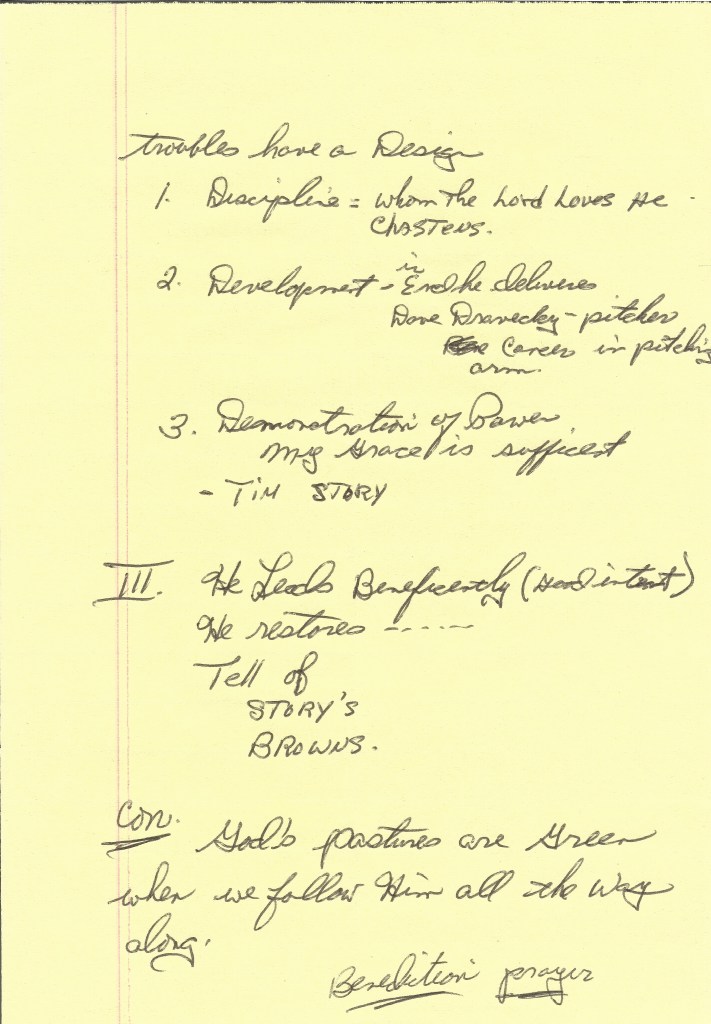 troubles have a Design
1. Discipline = whom the Lord Loves He
Chastens.
in
2. Development - End he delivers
Dave Dravecky - pitcher
Cancer in pitching
arm.
3. Demonstration of Power
my Grace is sufficest
- TIM STORY
III. He Leads Beneficently (Good intent)
He restores ------
Tell of
STORY'S
BROWNS.
Con. God's pastures are Green
when we follow Him all the way
along.
Benediction prayer